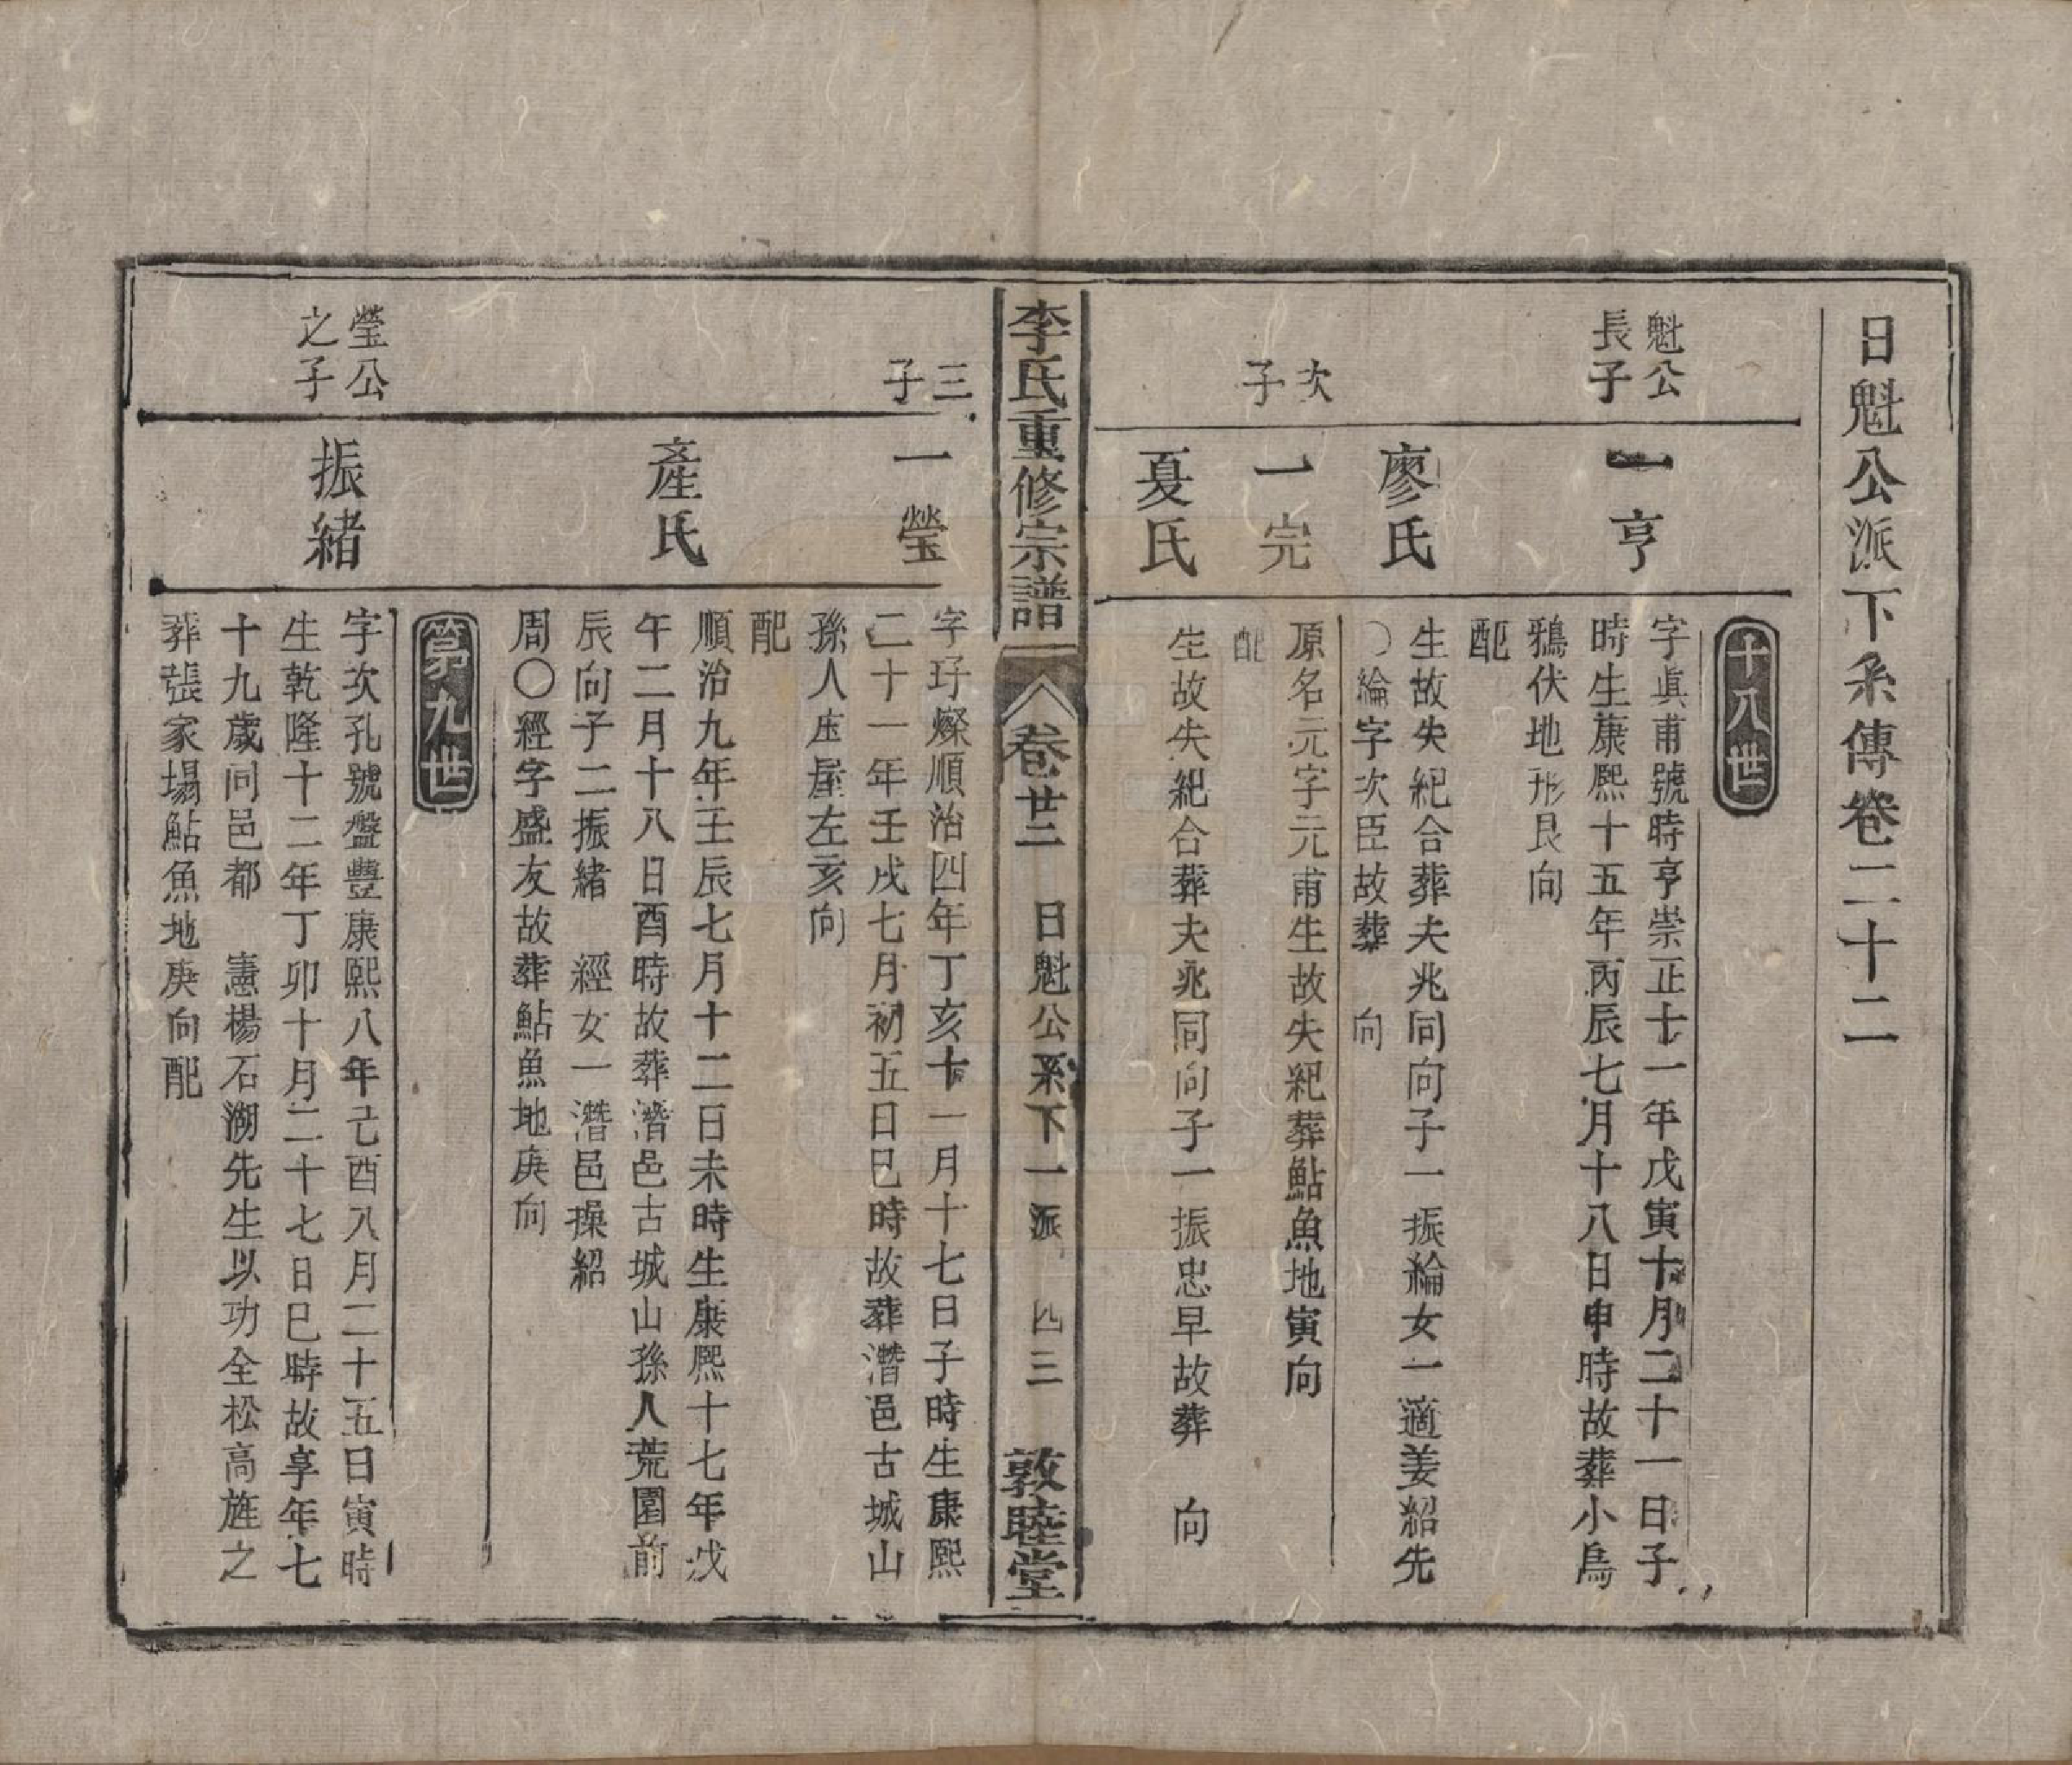 日魁公派下系傳卷二十二
十八世
魁公
長子
一亨
字眞甫號時亨崇正十一年戊寅十月二十一日子
時生康熙十五年丙辰七月十八日申時故葬小烏
鴉伏地形艮向
配
廖氏
生故失紀合葬夫兆同向子一振綸女一適姜紹先
〇綸字次臣故葬　向
次
子
一完
原名元字元甫生故失紀葬鮎魚地寅向
配
夏氏
生故失紀合葬夫兆同向子一振忠早故葬　向
李氏重修宗譜　卷廿二　日魁公系下一派　四三　敦睦堂
三
子
一瑩
字玗燦順治四年丁亥十一月十七日子時生康熙
二十一年壬戌七月初五日巳時故葬潛邑古城山
孫人庄屋左亥向
配
產氏
順治九年壬辰七月十二日未時生康熙十七年戊
午二月十八日酉時故葬潛邑古城山孫人荒園前
辰向子二振緒　經女一潛邑操紹
周〇經字盛友故葬鮎魚地庚向
第九世
瑩公
之子
振緒
字次孔號盤豐康熙八年己酉八月二十五日寅時
生乾隆十二年丁卯十月二十七日巳時故享年七
十九歲同邑都　憲楊石湖先生以功全松高旌之
葬張家塲鮎魚地庚向配